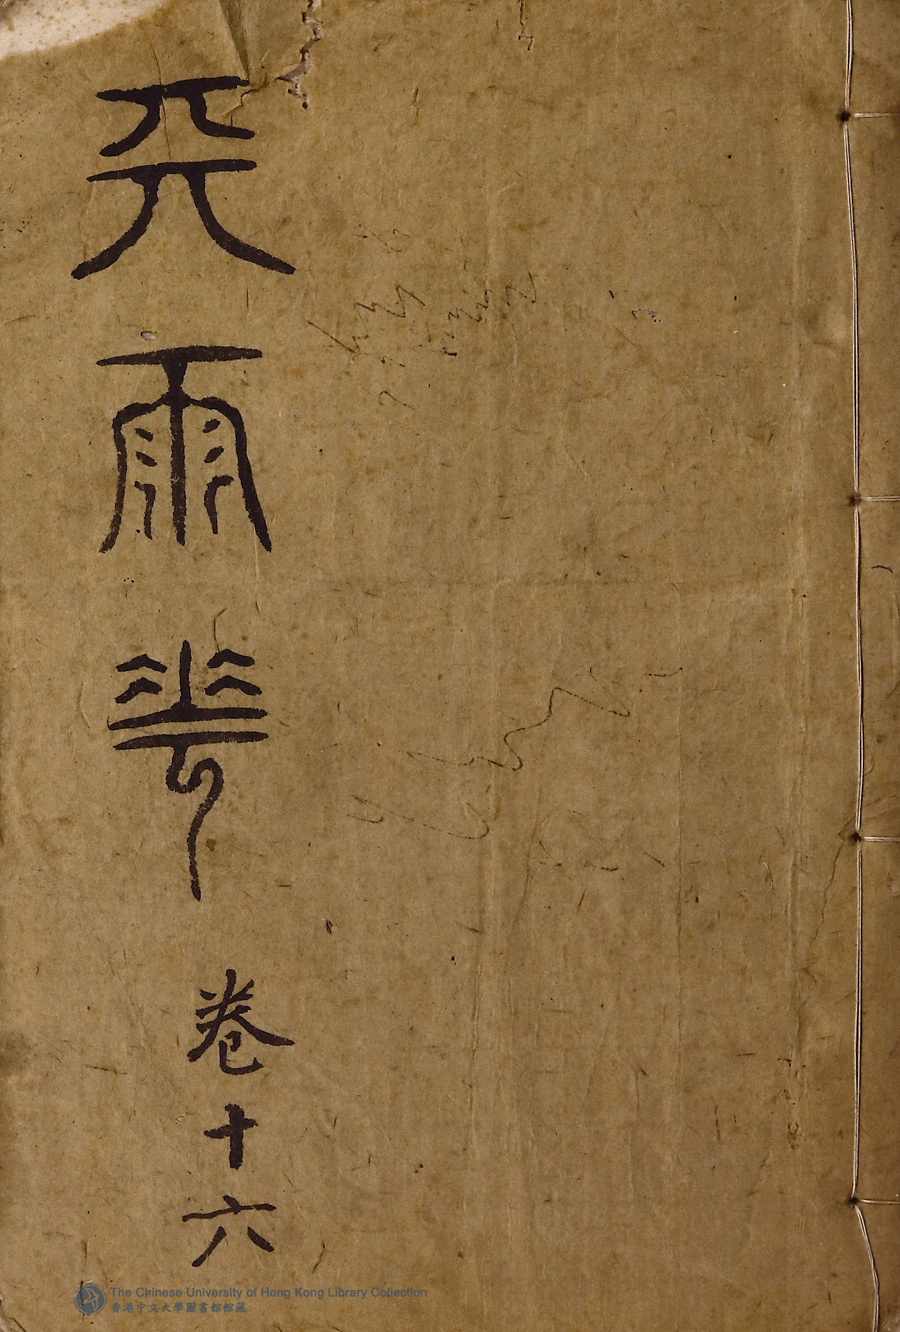 天雨花
卷十六
The Chinese University of Hong Kong Library Collection
香港中文大學圖書館館藏